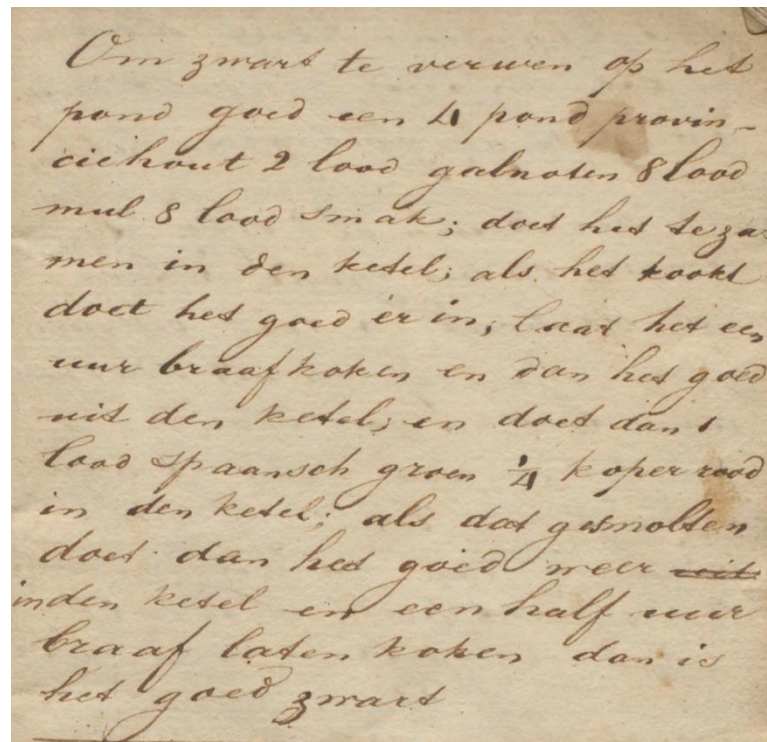 Om zwart te verwen op het
pond goed een 4 pond provin-
ciehout 2 lood galnoten 8 lood
mul 8 lood smak; doet het te za
men in den ketel; als het kookt
doet het goed er in; laat het een
uur braaf koken en dan het goed
uit den ketel; en doet dan 1
lood spaansch groen ¼ koper rood
in den ketel; als dat gesmolten
doet dan het goed weer uit
in den ketel en een half uur
braaf laten koken dan is
het goed zwart